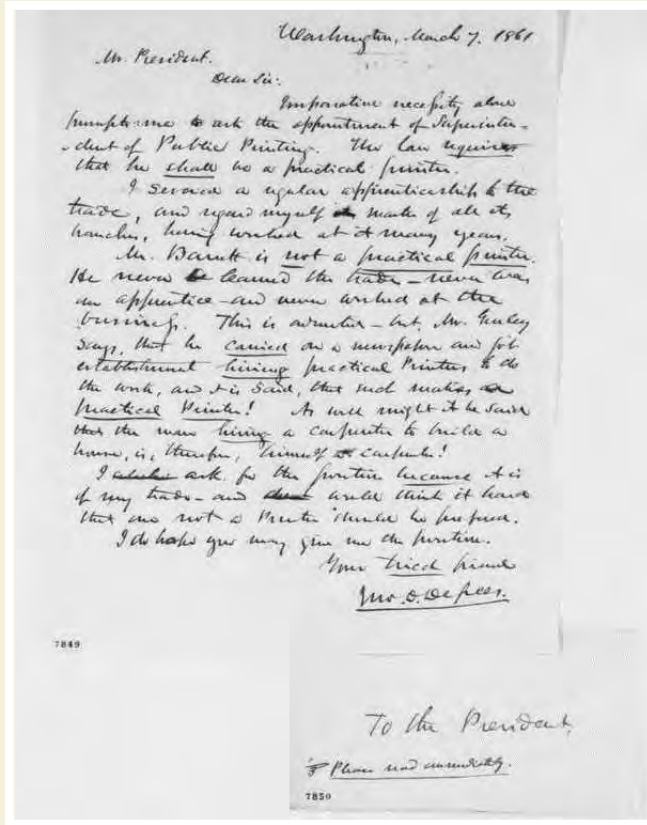 Washington, March 7. 1861
Mr. President.
Dear Sir:
Imperative necessity alone
prompts me to ask the appointment of Superinten-
-dent of Public Printing. The law requires
that he shall be a practical printer.
I served a regular apprenticeship to the
trade, and regard myself master of all its
branches, having worked at it many years.
Mr. Barrett is not a practical printer.
He never learned the trade – never was
an apprentice – and never worked at the
business. This is admitted – but, Mr. Gurley
says, that he carried on a newspaper and job
establishment hiring practical Printers to do
the work, and it is said, that such makes a
practical Printer! As well might it be said
that the man hiring a carpenter to build a
house, is, therefore, himself a carpenter!
I ask for the position because it is
of my trade – and would think it hard
that one not a Printer should be preferred.
I do hope you may give me the position.
Your tried friend
Jno. D. Defrees.
7849
To the President,
Please read immediately.
7850